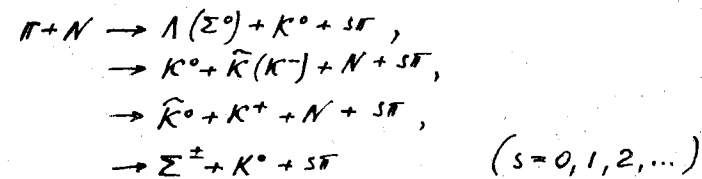 π + N → Λ (Σ⁰) + K⁰ + sπ ,
→ K⁰ + K̃ (K⁻) + N + sπ,
→ K̃⁰ + K⁺ + N + sπ ,
→ Σ^± + K⁰ + sπ (s = 0, 1, 2, ...)